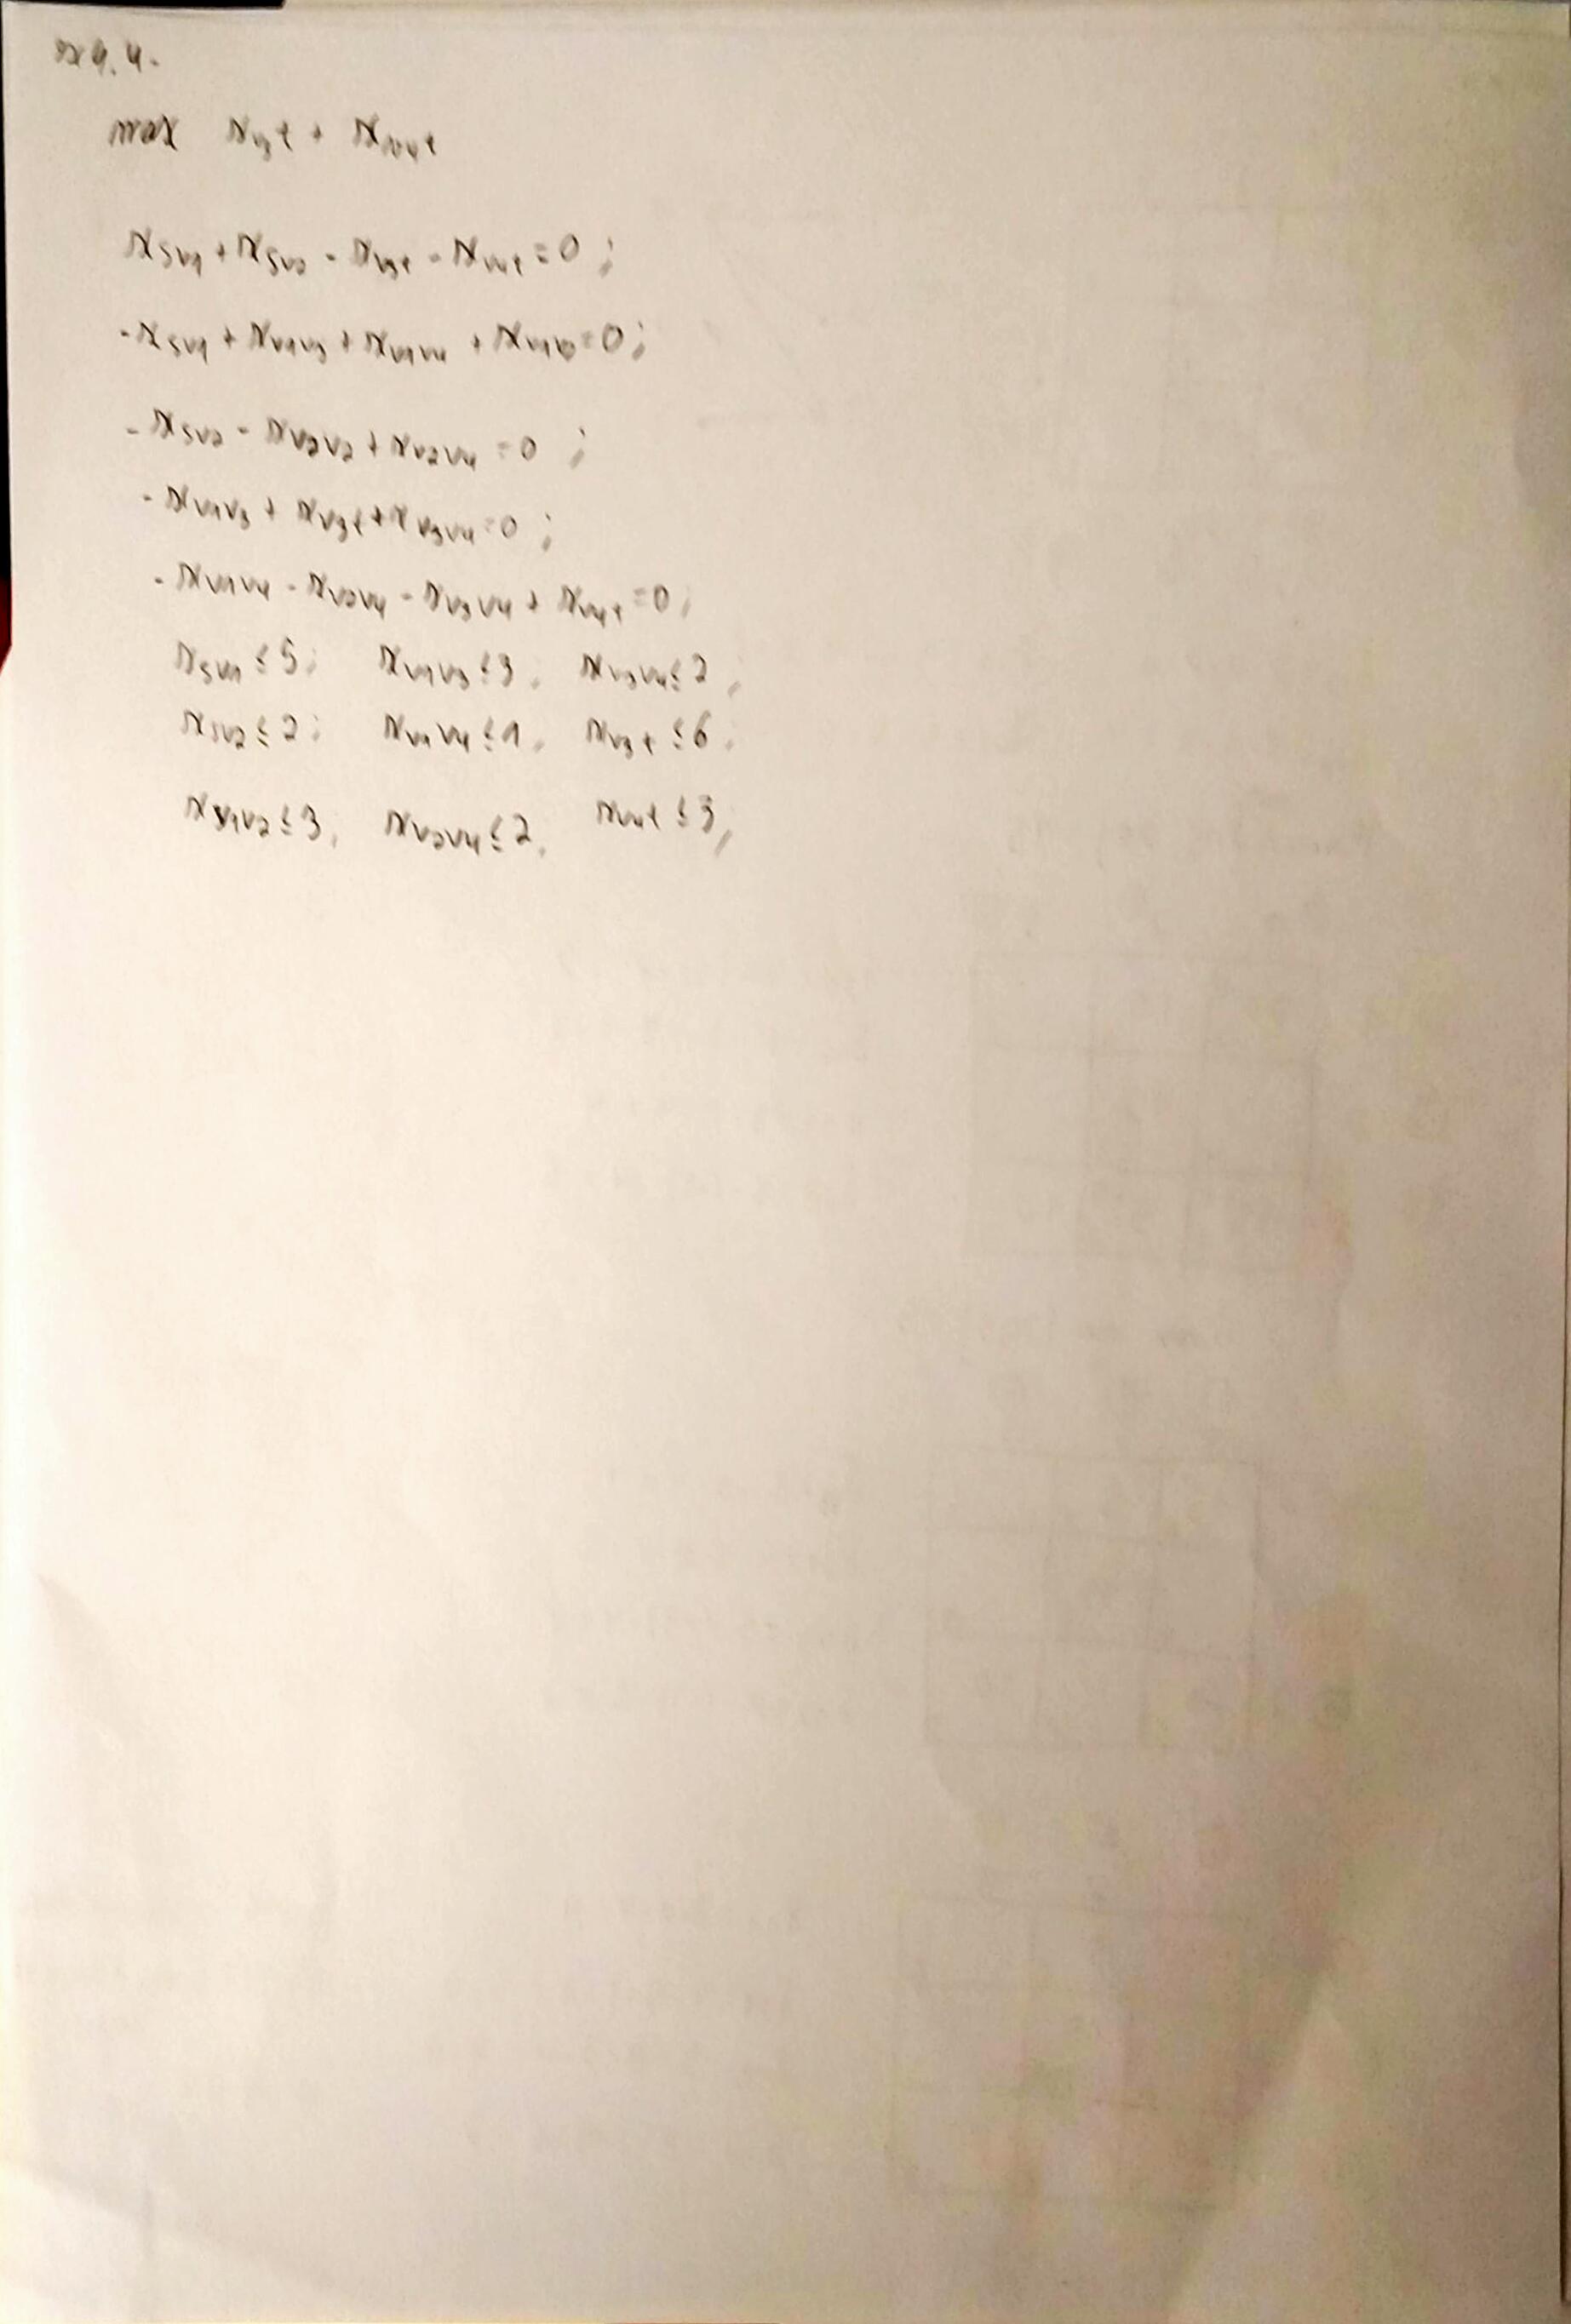 max x_v3t + x_v4t
x_sv1 + x_sv2 - x_v3t - x_v4t = 0;
-x_sv1 + x_v1v3 + x_v1v4 + x_v1v2 = 0;
-x_sv2 - x_v2v2 + x_v2v4 = 0;
-x_v1v3 + x_v3t + x_v3v4 = 0;
-x_v1v4 - x_v2v4 - x_v3v4 + x_v4t = 0;
x_sv1 ≤ 5; x_v1v3 ≤ 3, x_v3v4 ≤ 2,
x_sv2 ≤ 2; x_v1v4 ≤ 1, x_v3t ≤ 6,
x_v1v2 ≤ 3, x_v2v4 ≤ 2, x_v4t ≤ 3,